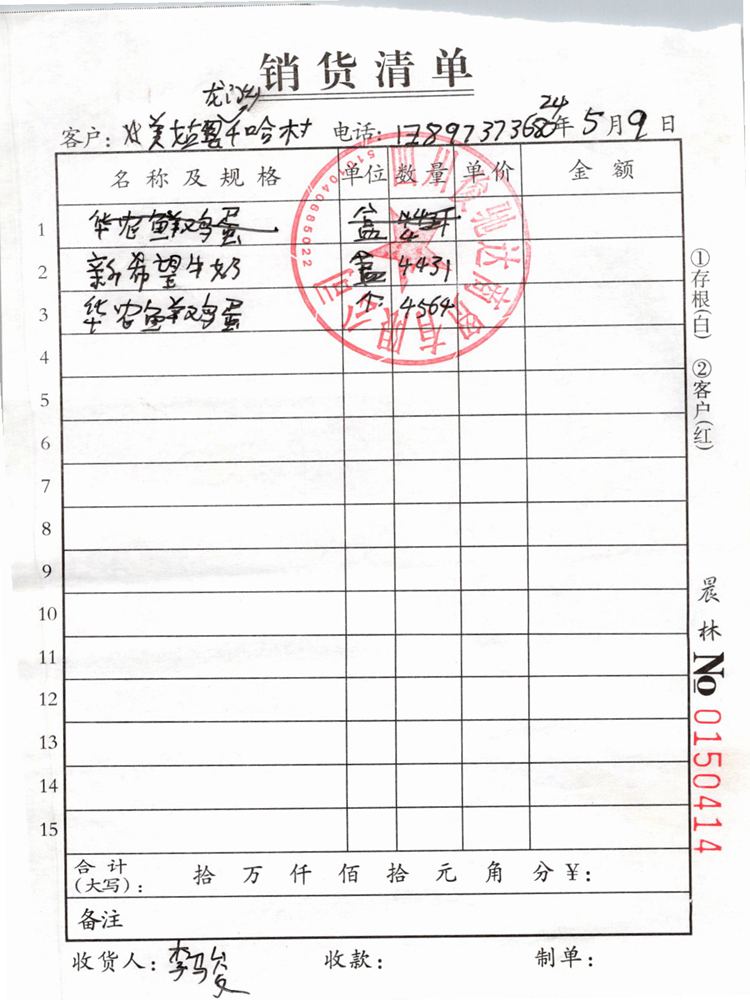 销货清单
龙门乡
客户：美姑县千哈村 电话：17897373680 24年5月9日
名称及规格 单位 数量 单价 金额
1 华农鲜鸡蛋 盒
2 新希望牛奶 盒 4431
3 华农鲜鸡蛋 个 4564
4
5
6
7
8
9
10
11
12
13
14
15
合计（大写）： 拾 万 仟 佰 拾 元 角 分 ￥：
备注
收货人：李马 收款： 制单：
①存根(白) ②客户(红)
晨林 No 0150414
驰达商贸有限公司
5134040685022